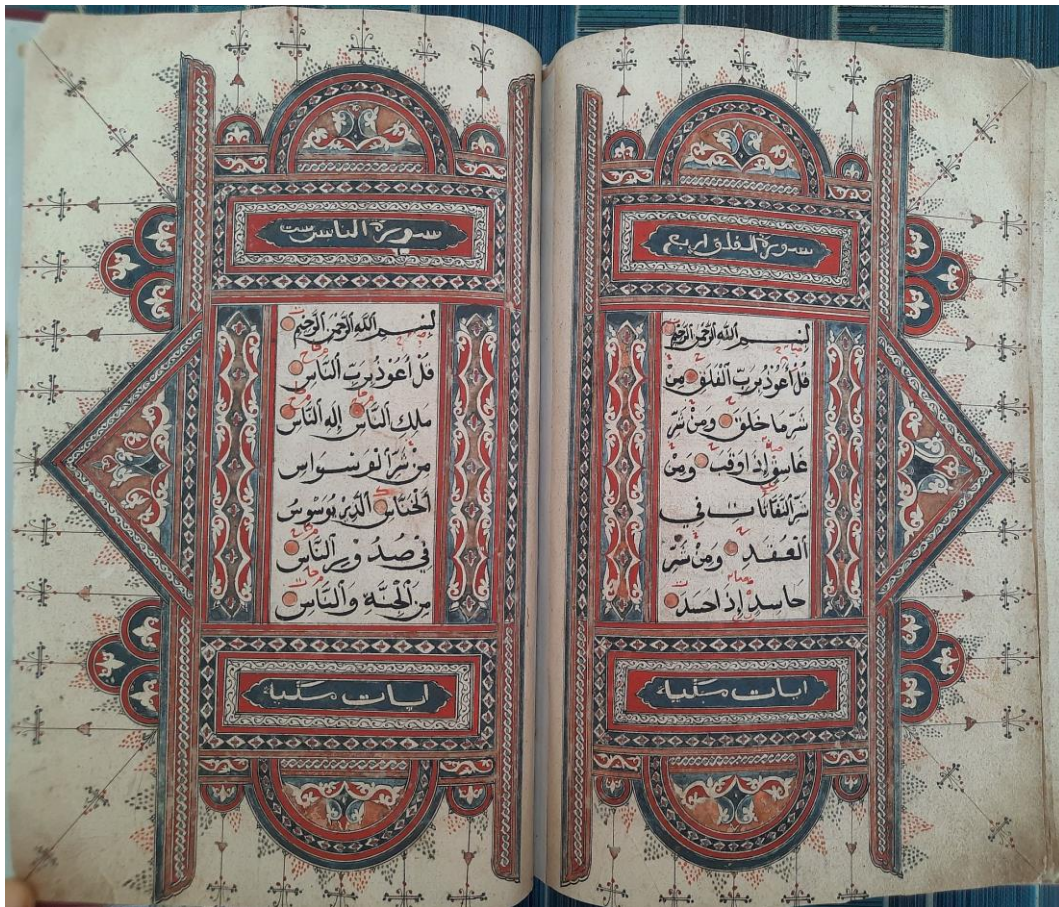 سورة الفلق اربع
بسم الله الرحمن الرحيم
قُلْ أَعُوذُ بِرَبِّ الْفَلَقِ مِنْ
شَرِّ مَا خَلَقَ وَمِنْ شَرِّ
غَاسِقٍ إِذَا وَقَبَ وَمِنْ
شَرِّ النَّفَّاثَاتِ فِي
الْعُقَدِ وَمِنْ شَرِّ
حَاسِدٍ إِذَا حَسَدَ
ايات مكية
سورة الناس ست
بسم الله الرحمن الرحيم
قُلْ أَعُوذُ بِرَبِّ النَّاسِ
مَلِكِ النَّاسِ إِلَهِ النَّاسِ
مِنْ شَرِّ الْوَسْوَاسِ
الْخَنَّاسِ الَّذِي يُوَسْوِسُ
فِي صُدُورِ النَّاسِ
مِنَ الْجِنَّةِ وَالنَّاسِ
ايات مكية